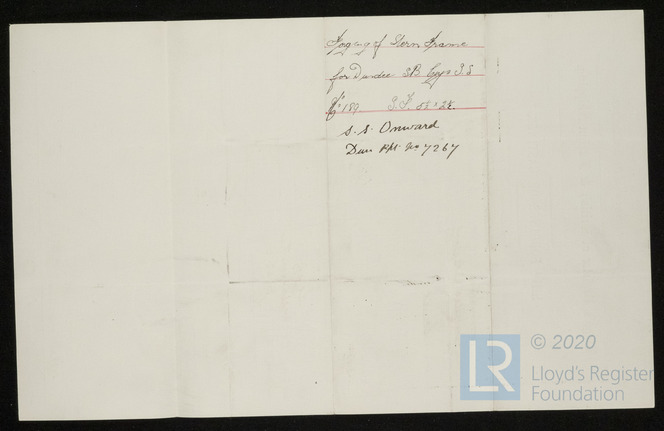 Forging of Stern Frame
for Dundee S.B. Coys S.S
No 189 S.F. 5½ × 2½.
S.S. Onward
Dun Rpt. No 7267
© 2020
LR
Lloyd's Register
Foundation